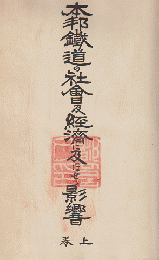 本邦鐵道の社會及經濟に及ほせる影響
上巻